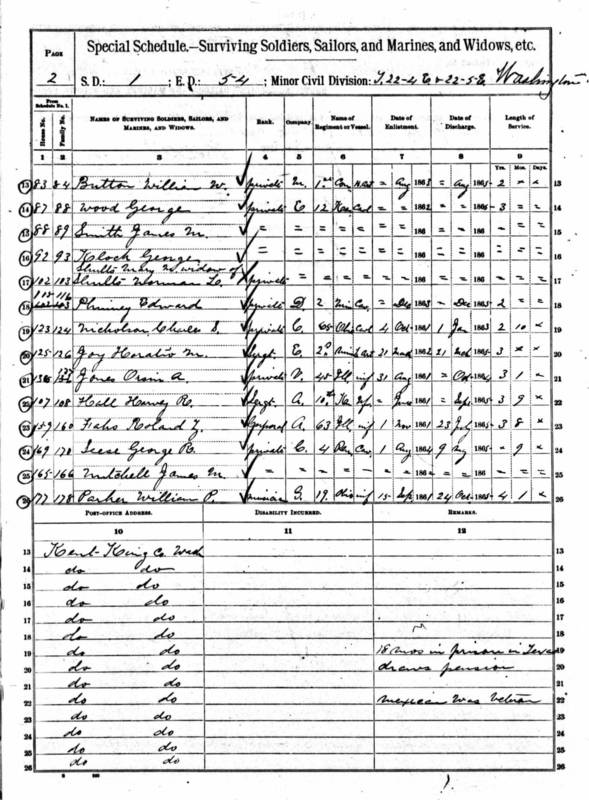 PAGE
2
Special Schedule.—Surviving Soldiers, Sailors, and Marines, and Widows, etc.
S. D.: 1 ; E. D.: 54 ; Minor Civil Division: T. 22-4 E & 22-5 E Washington
From Schedule No. 1.
House No. Family No. NAMES OF SURVIVING SOLDIERS, SAILORS, AND MARINES, AND WIDOWS. Rank. Company. Name of Regiment or Vessel. Date of Enlistment. Date of Discharge. Length of Service.
1 2 3 4 5 6 7 8 9
Yrs. Mos. Days.
13 83 84 Button William W. private M. 1st = Aug 1863 = Aug 1865 2 13
14 87 88 Wood George private C 12 = = 1862 = = 1865 3 = = 14
15 88 89 Smith James M. = = = = = 186 = = 186 = = = 15
16 92 93 Klock George = = = = = 186 = = 186 = = = 16
Shults Mary M. widow of
17 102 103 Shults Norman L. private = = = = 186 = = 186 = = = 17
18 Phinney Edward private D. 2 Cav. = Dec 1863 = Dec 1865 2 = = 18
19 123 124 Nicholson Charles S. private C. 65 4 Oct 1861 1 Jan 1863 2 10 19
20 125 126 Joy Horatio M. Sergt. E. 2d 31 1862 21 1865 3 20
21 Jones Orvin A. private 45 Ill inf 31 Aug 1861 = Oct 1864 3 1 21
22 107 108 Hall Harvey R. Sergt. A. 10th = June 1861 = Sept. 1865 3 9 22
23 159 160 Roland Z. Corporal A. 63 Ill inf 1 Nov 1861 23 July 1865 3 8 23
24 169 170 Seese George R. private C. 4 Cav. 1 Aug 1864 9 1865 9 24
25 165 166 Mitchell James M. = = = = = 186 = = 186 = = = 25
26 177 178 Parker William P. musician G. 19. Ohio inf 15 Sep. 1861 24 Oct. 1865 4 1 26
POST-OFFICE ADDRESS. DISABILITY INCURRED. REMARKS.
10 11 12
13 Kent King Co Wash 13
14 do do 14
15 do do 15
16 do do 16
17 do do 17
18 do do 18
19 do do 18 mos in prison in Texas 19
20 do do draws pension 20
21 do do 21
22 do do mexican War Veteran 22
23 do do 23
24 do do 24
25 do do 25
26 do do 26